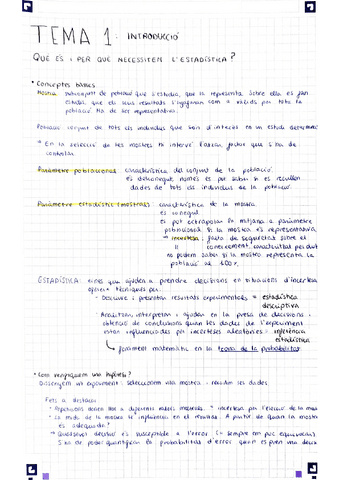 TEMA 1: INTRODUCCIÓ
QUÈ ÉS I PER QUÈ NECESSITEM L'ESTADÍSTICA?
• Conceptes bàsics
Mostra: subconjunt de població que s'estudia, que la representa. Sobre ella es fan
estudis, que els seus resultats s'agafaran com a vàlids per tota la
població. Ha de ser representativa.
Població: conjunt de tots els individus que són d'interès en un estudi determinat
* En la selecció de les mostres hi intervé l'atzar, factor que s'ha de
controlar.
Paràmetre poblacional: característica del conjunt de la població.
és desconegut, només es pot saber si es recullen
dades de tots els individus de la població.
Paràmetre estadístic (mostral): característica de la mostra
és conegut
es pot extrapolar la mitjana a paràmetre
poblacional si la mostra és representativa
→ incertesa: falta de seguretat sobre el
coneixement, característica perquè
no podem saber si la mostra representa la
població al 100%.
ESTADÍSTICA: eines que ajuden a prendre decisions en situacions d'incertesa
ofereix tècniques per:
- Descriure i presentar resultats experimentals = estadística
descriptiva
- Analitzar, interpretar i ajudar en la presa de decisions i
obtenció de conclusions quan les dades de l'experiment
estan influenciades per incerteses aleatòries = inferència
estadística
→ fonament matemàtic en la teoria de la probabilitat
• Com verifiquem una hipòtesi?
Dissenyem un experiment: seleccionem una mostra i recollim les dades.
Fets a destacar
- Repeticions donen lloc a diferents valors mostrals → incertesa per l'elecció de la mostra
- La mida de la mostra té influència en el resultat. A partir de quan la mostra
és adequada?
- Qualsevol decisió és susceptible a l'error. Ens sempre ens puc equivocar
S'ha de poder quantificar en probabilitats d'error quan es pren una decisió